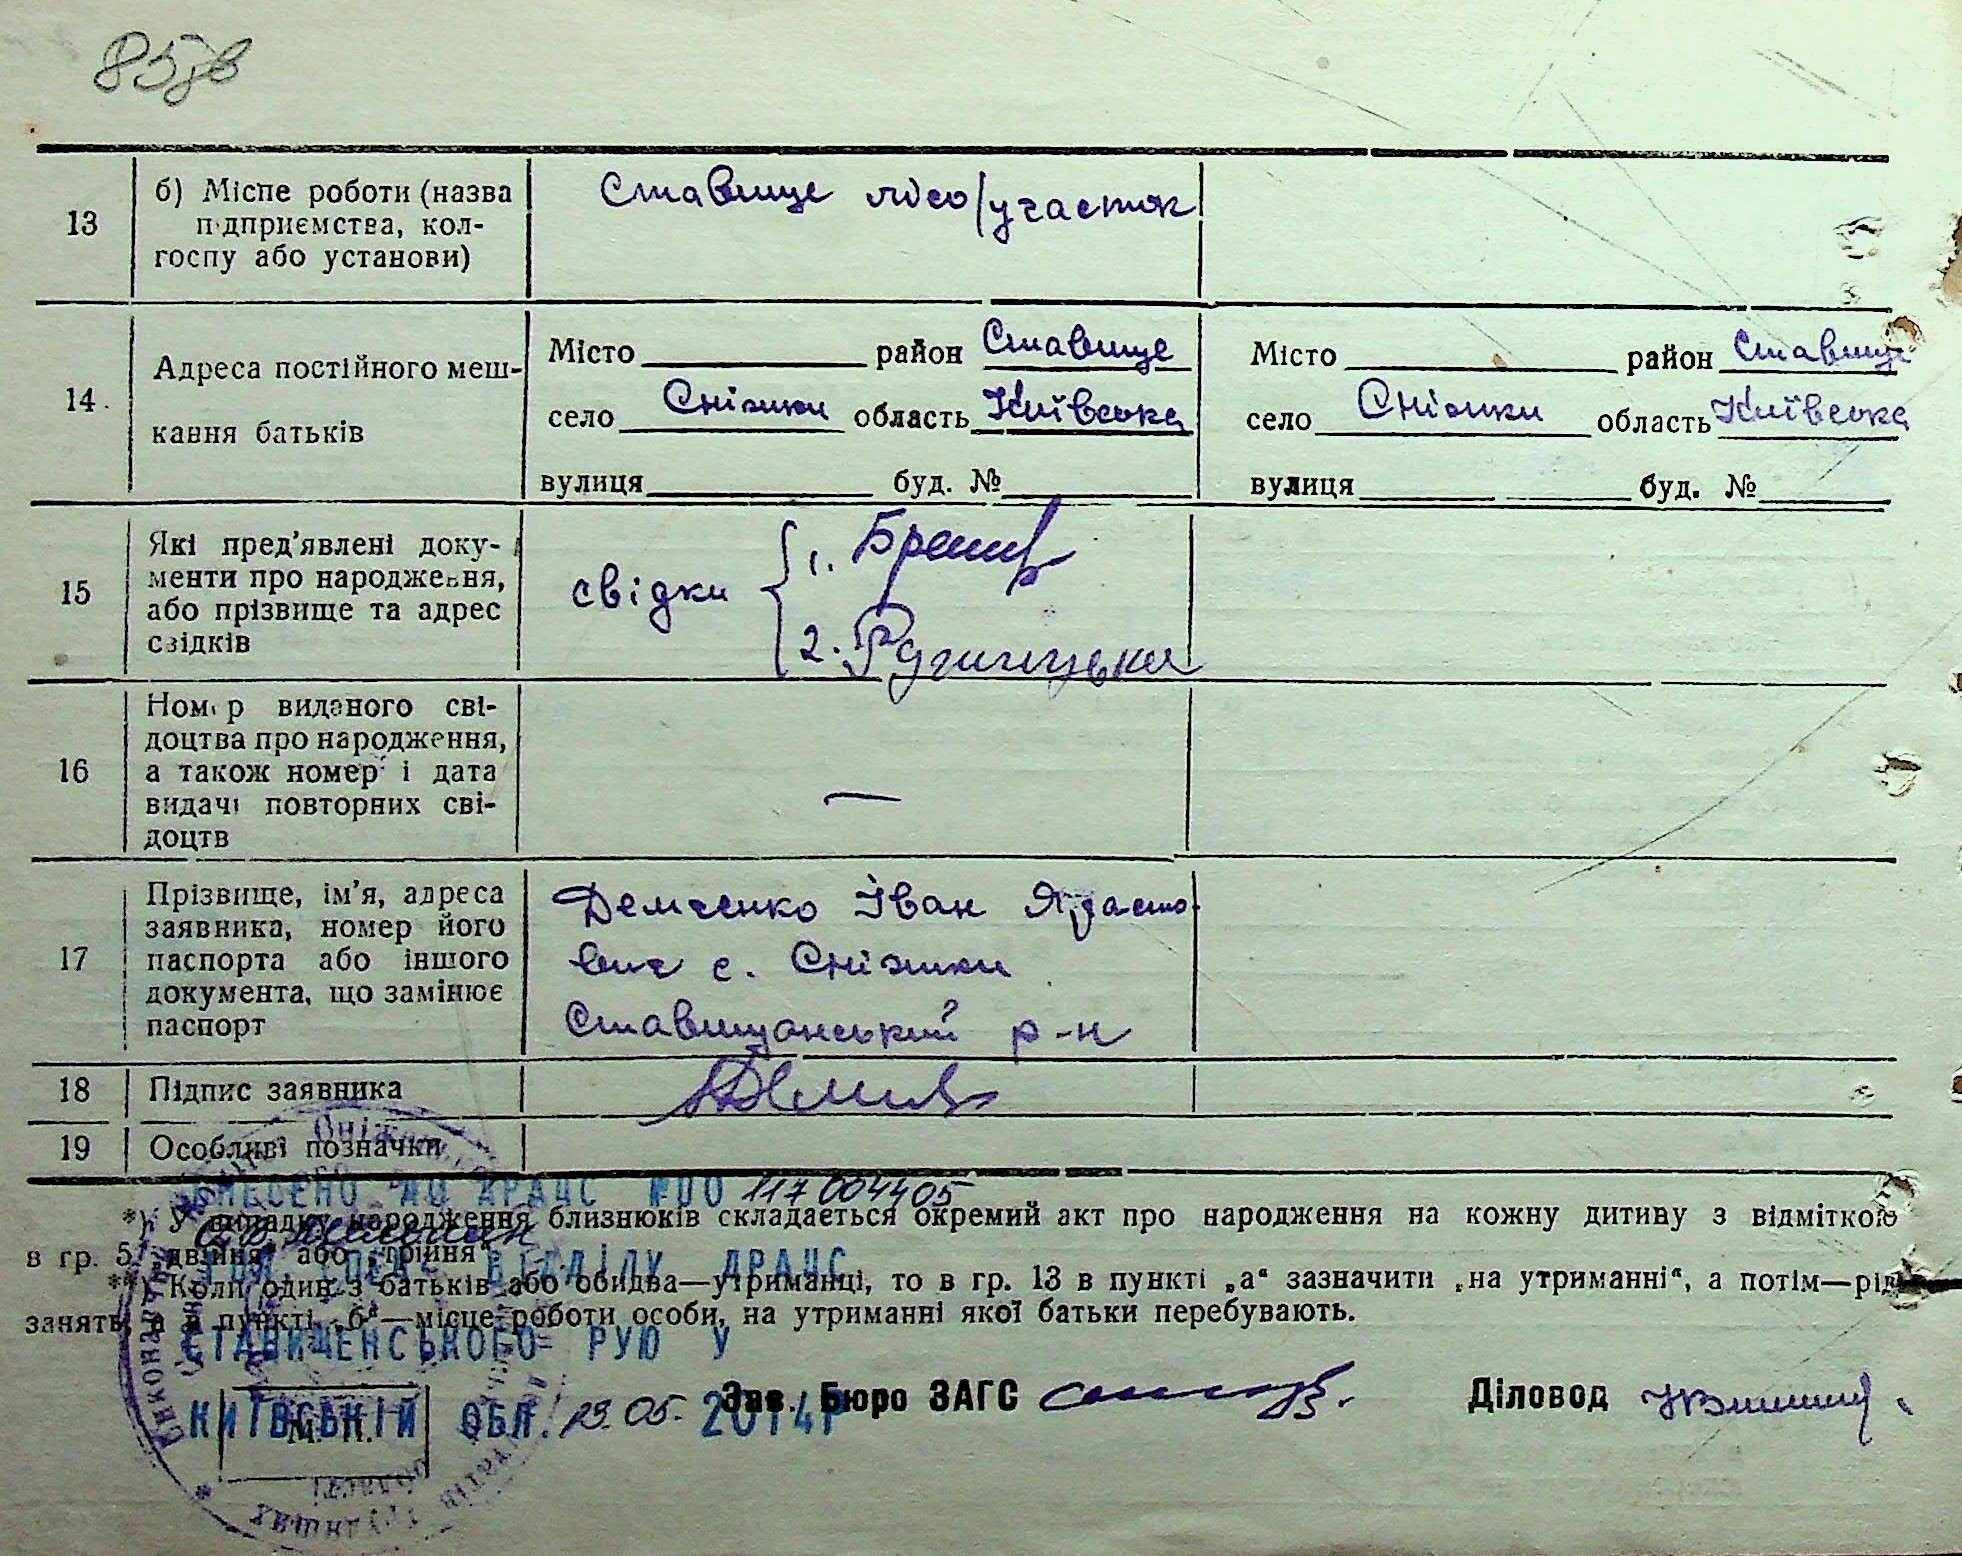 85зв
13
б) Місце роботи (назва
підприємства, кол-
госпу або установи)
Ставище лісо/участок
14
Адреса постійного меш-
кання батьків
Місто район Ставище
село Сніжки область Київська
вулиця буд. №
Місто район Ставище
село Сніжки область Київська
вулиця буд. №
15
Які пред'явлені доку-
менти про народження,
або прізвище та адрес
свідків
свідки
1.
2.
16
Номер виданого сві-
доцтва про народження,
а також номер і дата
видачі повторних сві-
доцтв
—
17
Прізвище, ім'я, адреса
заявника, номер його
паспорта або іншого
документа, що замінює
паспорт
Демченко Іван
вич с. Сніжки
Ставищанський р-н
18
Підпис заявника
19
Особливі позначки
ВНЕСЕНО ДО ДРАЦС №00 117004405
*) У випадку народження близнюків складається окремий акт про народження на кожну дитину з відміткою
в гр. 5 „двійня" або „трійня"
ВІДДІЛУ ДРАЦС
**) Коли один з батьків або обидва—утриманці, то в гр. 13 в пункті „а" зазначити „на утриманні", а потім—рід
занять, а в пункті „б"—місце роботи особи, на утриманні якої батьки перебувають.
СТАВИЩЕНСЬКОГО РУЮ У
Зав. Бюро ЗАГС
Діловод
КИЇВСЬКІЙ ОБЛ. 19.05. 2014Р
М. П.